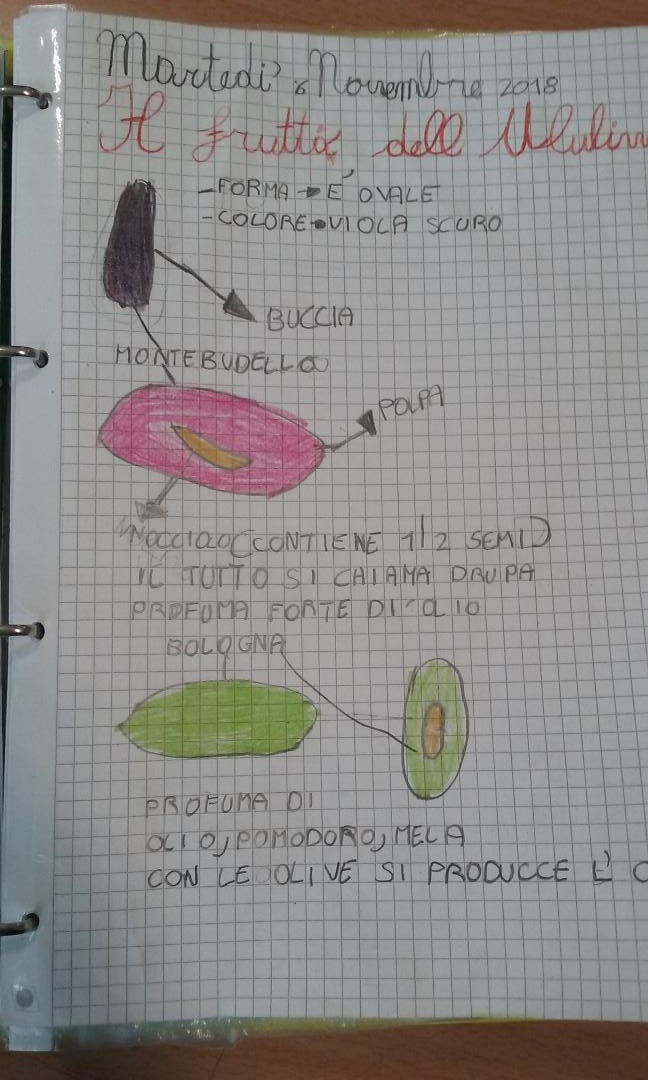 Martedì 6 Novembre 2018
Il frutto dell'Uliv
-FORMA→È OVALE
-COLORE→VIOLA SCURO
BUCCIA
MONTEBUDELLO
POLPA
NOCCIOLO (CONTIENE 1/2 SEMI)
IL TUTTO SI CHIAMA DRUPA
PROFUMA FORTE DI OLIO
BOLOGNA
PROFUMA DI
OLIO, POMODORO, MELA
CON LE OLIVE SI PRODUCCE L'O